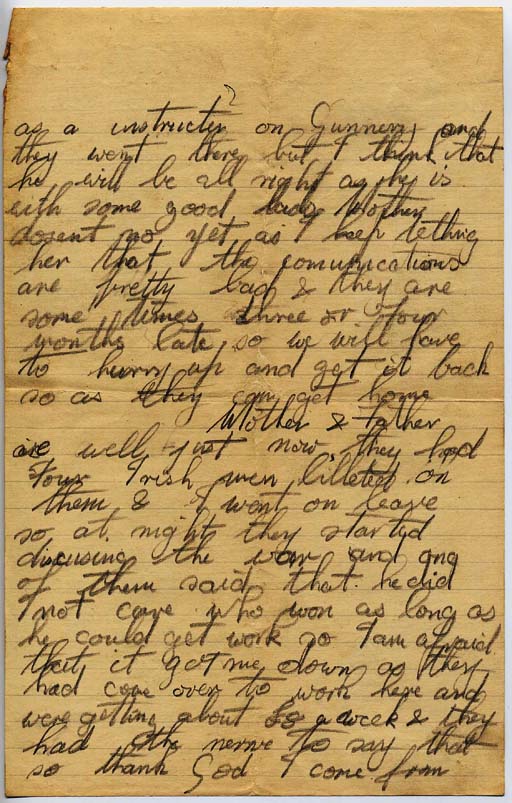 2
as a instructer on Gunnery and
they went there but I think that
he will be all right as he is
with some good lads Mother
dosent no yet as I keep telling
her that the comunications
are pretty bad & they are
some times three or four
months late, so we will have
to hurry up and get it back
so as they can get home
Mother & Father
are well just now, they had
Four Irish men billeted on
them & I went on leave
so at night they started
discusing the war and one
of them said that he did
not care who won as long as
he could get work so I am afraid
that it got me down as they
had come over to work here and
were getting about a week & they
had the nerve to say that
so thank God I come from